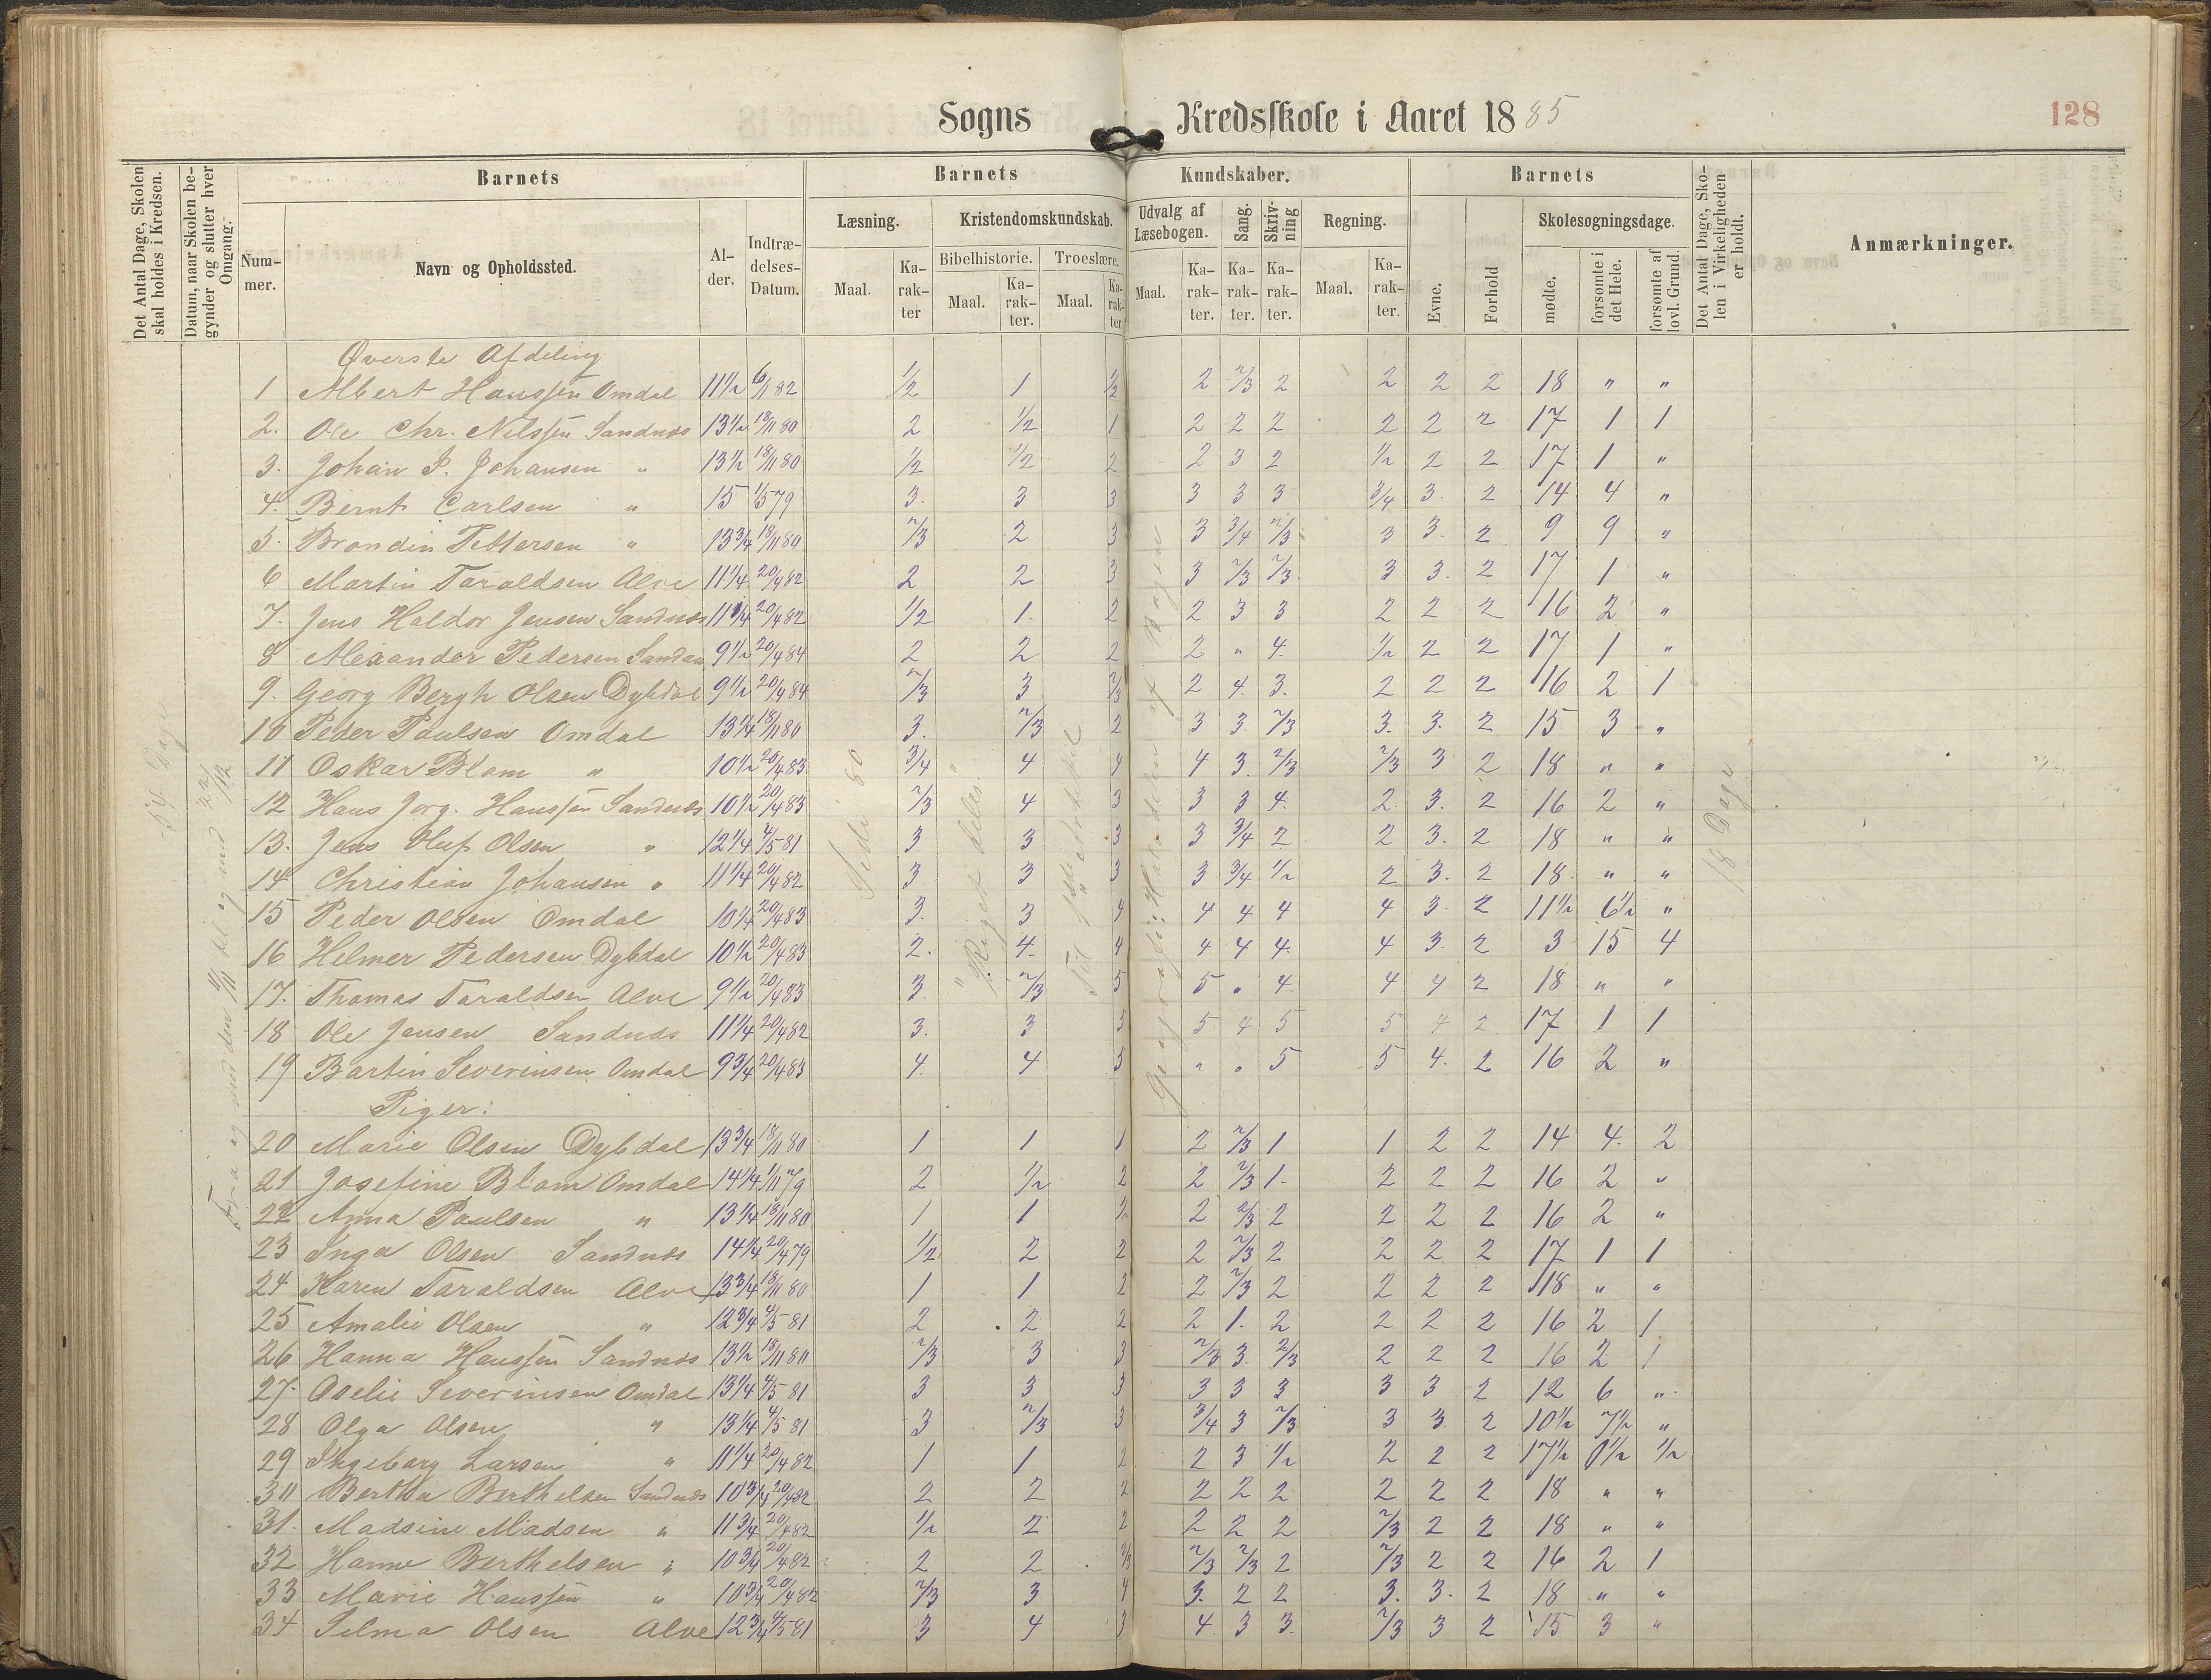 Sogns Kredsskole i Aaret 1885
128
Det Antal Dage, Skolen skal holdes i Kredsen.
Datum, naar Skolen begynder og slutter hver Omgang.
Barnets
Nummer.
Navn og Opholdssted.
Alder.
Indtrædelses-Datum.
Barnets Kundskaber.
Læsning.
Maal.
Karakter
Kristendomskundskab.
Bibelhistorie.
Maal.
Karakter.
Troeslære.
Maal.
Karakter
Udvalg af Læsebogen.
Maal.
Karakter.
Sang.
Karakter.
Skrivning
Karakter.
Regning.
Maal.
Karakter.
Barnets
Evne.
Forhold
Skolesøgningsdage.
mødte.
forsømte i det Hele.
forsømte af lovl. Grund.
Det Antal Dage, Skolen i Virkeligheden er holdt.
Anmærkninger.
54 Dage
18 Dage
Øverste Afdeling
1 Albert Hanssen Omdal 11½ 6/11 82 ½ 1 ½ 2 2/3 2 2 2 2 18 " "
2. Ole Chr. Nilssen Sandnæs 13½ 18/11 80 2 ½ 1 2 2 2 2 2 2 17 1 1
3. Johan P. Johansen " 13½ 18/11 80 ½ ½ 2 2 3 2 ½ 2 2 17 1 "
4. Bernt Carlsen " 15 1/5 79 3. 3 3 3 3 3 3/4 3. 2 14 4 "
5. Brondin Pettersen " 13¾ 18/11 80 2/3 2 3 3 3/4 2/3 3 3. 2 9 9 "
6 Martin Taraldsen Alve 11¼ 20/4 82 2 2 3 3 2/3 2/3 3 3. 2 17 1 "
7. Jens Haldor Jensen Sandnæs 11¼ 20/4 82 ½ 1. 2 2 3 3 2 2 2 16 2 "
8 Alexander Pedersen 9½ 20/4 84 2 2 2 2 " 4. ½ 2 2 17 1 "
9. Georg Bergh Olsen Dybdal 9½ 20/4 84 2/3 3 2/3 2 4. 3. 2 2 2 16 2 1
10 Peder Paulsen Omdal 13¼ 18/11 80 3. 2/3 2 3 3. 2/3 3. 3. 2 15 3 "
11 Oskar Blom " 10½ 20/4 83 3/4 4 4 4 3. 2/3 2/3 3 2 18 " "
12 Hans Jørg. Hanssen Sandnæs 10½ 20/4 83 2/3 4 3 3 3 4. 2. 3. 2 16 2 "
13. Jens Oluf Olsen " 12¼ 4/5 81 3 3 3 3 3/4 2 2 3. 2 18 " "
14 Christian Johansen " 11¼ 20/4 82 3 3 3 3 3/4 ½ 2 3. 2 18. " "
15 Peder Olsen Omdal 10¼ 20/4 83 3. 3 4 4 4 4 4 3. 2 11½ 6½ "
16 Helmer Pedersen Dybdal 10½ 20/4 83 2. 4. 4 4 4 4. 4 3. 2 3 15 4
17. Thomas Taraldsen Alve 9½ 20/4 83 3. 2/3 5 5 " 4. 4 4 2 18 " "
18 Ole Jensen Sandnæs 11¼ 20/4 82 3. 3 5 5 4 5 5 4 2 17 1 1
19 Bartin Severinsen Omdal 9¾ 20/4 83 4. 4 5 " " 5 5 4. 2 16 2 "
Piger:
20 Marie Olsen Dybdal 13¾ 18/11 80 1 1 1 2 2/3 1 1 2 2 14 4. 2
21 Josefine Blom Omdal 14¼ 1/11 79 2 ½ 2 2 2/3 1. 2 2 2 16 2 "
22 Anna Paulsen " 13¼ 18/11 80 1 1 ½ 2 2/3 2 2 2 2 16 2 "
23 Inga Olsen Sandnæs 14¼ 20/4 79 ½ 2 2 2 2/3 2 2 2 2 17 1 1
24 Karen Taraldsen Alve 13¾ 18/11 80 1 1 2 2 2/3 2 2 2 2 18 " "
25 Amalie Olsen " 12¾ 4/5 81 2 2 2 2 1. 2 2 2 2 16 2 1
26 Hanna Hanssen Sandnæs 13½ 18/11 80 2/3 3 3 2/3 3. 2/3 2 2 2 16 2 1
27. Oselie Severinsen Omdal 13¼ 4/5 81 3 3 3 3 3 3 3 3 2 12 6 "
28 Olga Olsen " 13¼ 4/5 81 3 2/3 3 3/4 3 2/3 3 3. 2 10½ 7½ "
29 Ingeborg Larsen " 11¼ 20/4 82 1 1 2 2 3 ½ 2 2 2 17½ 0½ ½
30 Bertha Berthelsen Sandnæs 10¾ 20/4 82 2 2 2 2 2 2 2 2 2 18 " "
31. Madsine Madsen " 11¾ 20/4 82 ½ 2 2 2 2 2 2/3 2 2 18 " "
32 Hanne Berthelsen " 10¾ 20/4 82 2 2 2/3 2/3 2/3 2 2/3 2 2 16 2 1
33 Marie Hanssen " 10¾ 20/4 82 2/3 3 4 3. 2 2 3. 3. 2 18 " "
34 Selma Olsen Alve 12¾ 4/5 81 3 4 3 4 3 3. 2/3 3 2 15 3 "